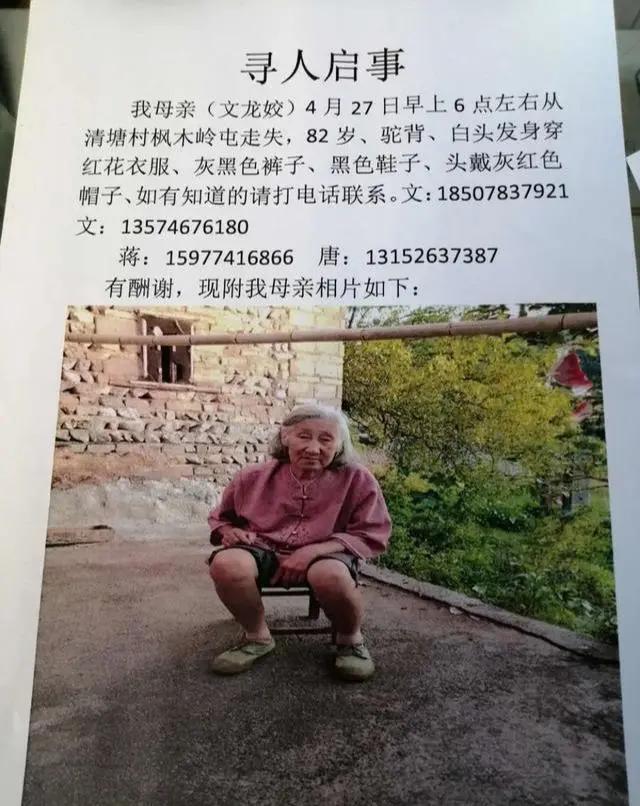 寻人启事
我母亲（文龙姣）4 月 27 日早上 6 点左右从
清塘村枫木岭屯走失，82 岁、驼背、白头发身穿
红花衣服、灰黑色裤子、黑色鞋子、头戴灰红色
帽子、如有知道的请打电话联系。文：18507837921
文：13574676180
蒋：15977416866 唐：13152637387
有酬谢，现附我母亲相片如下：